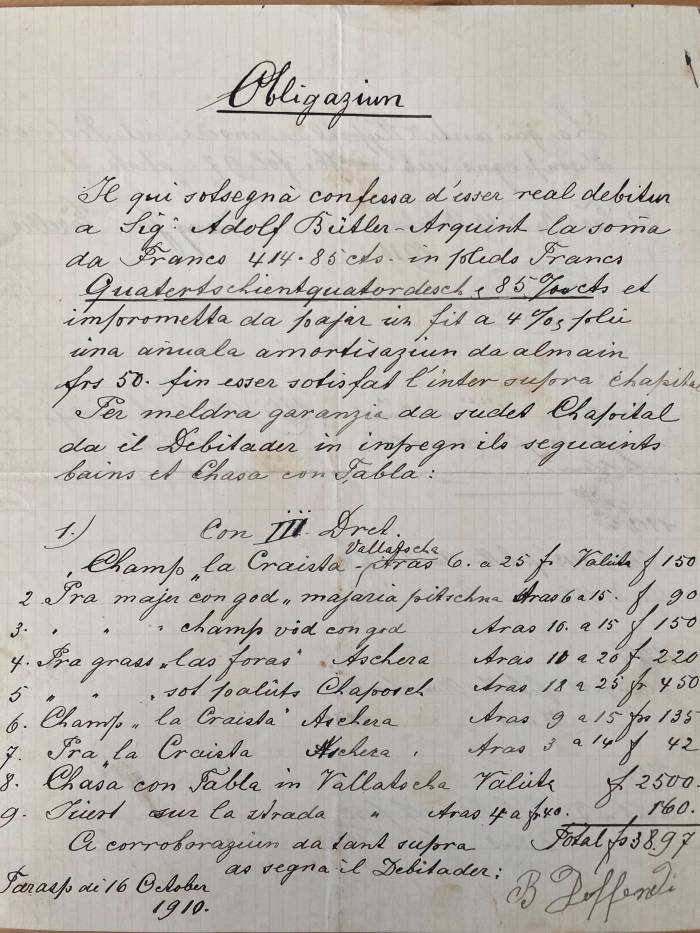 Obligaziun
Il qui sotsegnà confessa d'esser real debitur
a Sigr. Adolf Bütler-Arquint la som̅a
da Francs 414.85 cts. in pleds Francs
Quatertschientquatordesch e 85 %00 cts et
imprometta da pajar ün fit a 4 %, plü
üna an̅uala amortisaziun da almain
frs 50. fin esser sotisfat l'inter supra chapital
Per meldra garanzia da sudet Chapital
da il Debitader in impegn ils seguaints
bains et Chasa con Tabla:
1.) Con III. Dret.
Vallatscha
Champ „la Craista - Aras 6. a 25 f. Valüta f 150
2. Pra majer con god „majaria pitschna Aras 6 a 15. f 90
3. " " " champ vöd con god Aras 10. a 15 f 150
4. Pra grass „las foras" Aschera Aras 11 a 20 f. 220
5 " " „sot palüts Chaposch Aras 18 a 25 fr 450
6. Champ „la Craista" Aschera Aras 9 a 15 frs 135
7. Pra „la Craista Aschera, Aras 3 a 14 f 42
8. Chasa con Tabla in Vallatscha Valüta f 2500.
9. Jüert sur la strada " Aras 4 a fr 40. 160.
A corroboraziun da tant supra Total frs 38.97
as segna il Debitader:
Tarasp di 16 October
1910.
B